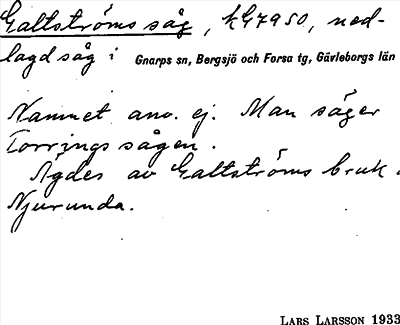 Galtströms såg, kG7950, ned-
lagd såg i Gnarps sn, Bergsjö och Forsa tg, Gävleborgs län
Namnet anv. ej. Man säger
Torrings sågen.
Ägdes av Galtströms bruk i
Njurunda.
LARS LARSSON 1933